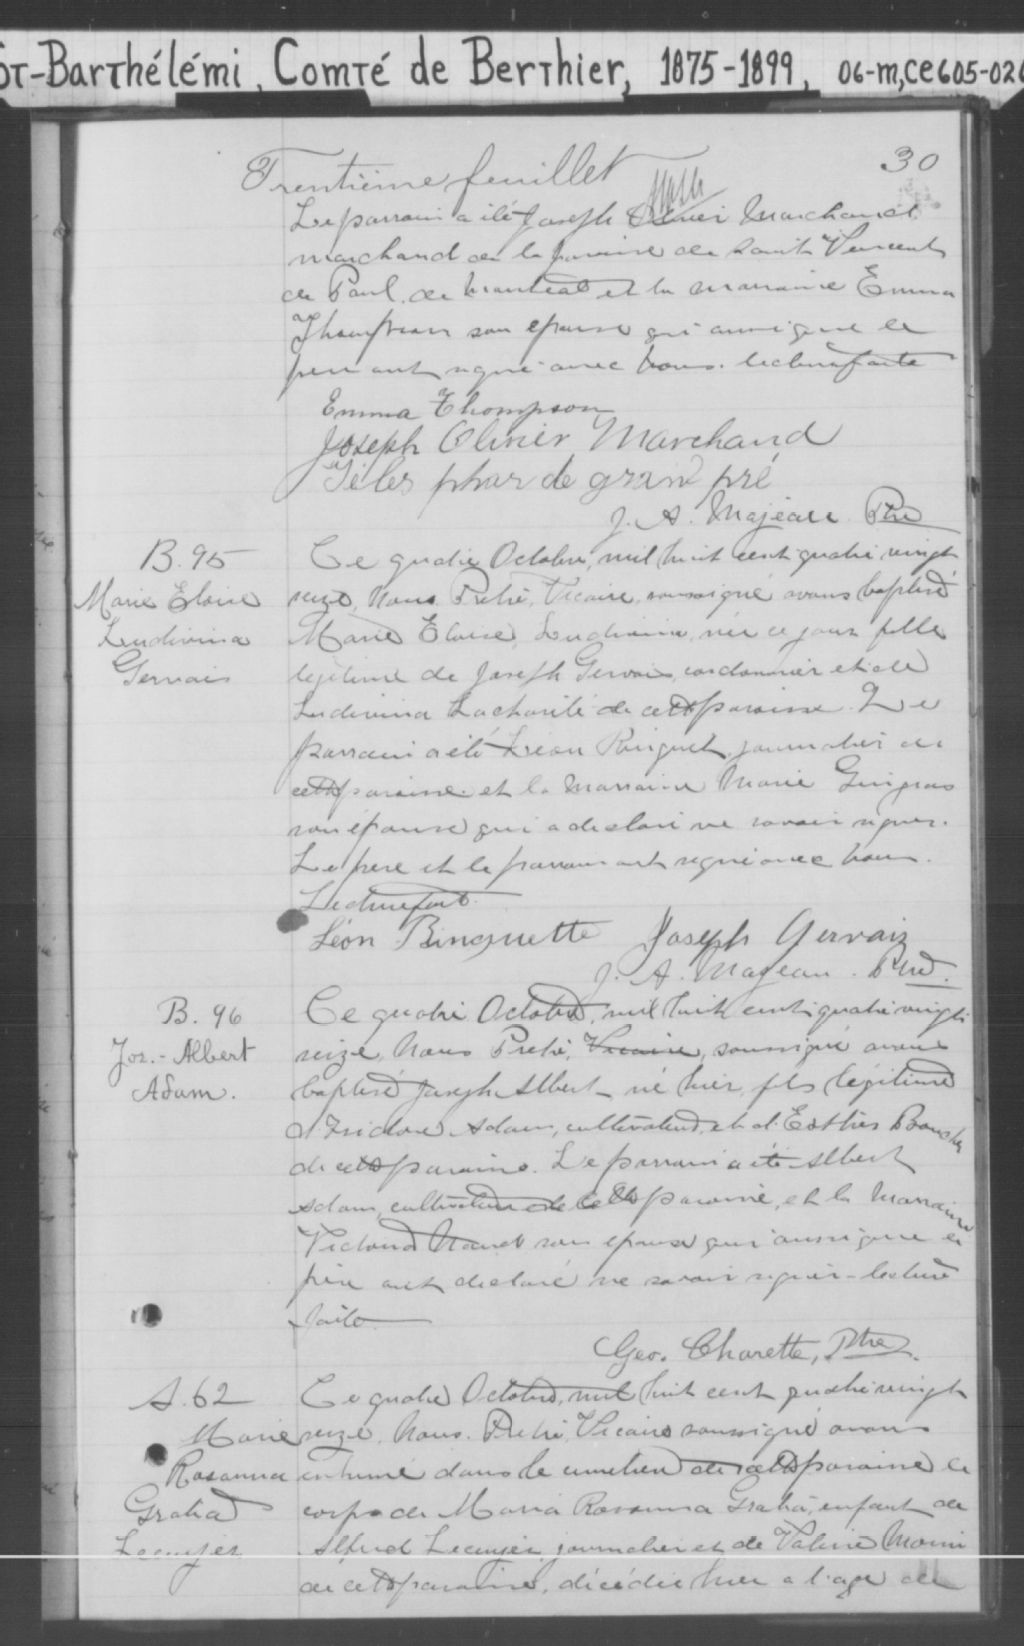 St-Barthélémi, Comté de Berthier, 1875-1899, 06-m,CE605-026
30
Trentième feuillet
Le parrain a été Joseph Olivier Marchand
marchand de la paroisse de Saint Vincent
de Paul de Montréal et la marraine Emma
Thompson son épouse qui ainsi que le
père ont signé avec nous. lecture faite
Emma Thompson
Joseph Olivier Marchand
de grand pré
J. A. Majeau Ptre
B. 95
Marie Eloise
Ludivina
Gervais
Ce quatre Octobre, mil huit cent quatre vingt
seize, Nous Prêtre, Vicaire, soussigné avons baptisé
Marie Eloise Ludivina, née ce jour fille
légitime de Joseph Gervais, cordonnier et de
Ludivina Lacharité de cette paroisse. Le
parrain a été Léon Ringuet, journalier de
cette paroisse et la marraine Marie Gingras
son épouse qui a déclaré ne savoir signer.
Le père et le parrain ont signé avec nous.
Lecture faite.
Léon Binquette Joseph Gervais
J. A. Majeau. Ptre.
B. 96
Jos.-Albert
Adam.
Ce quatre Octobre, mil huit cent quatre vingt
seize, Nous Prêtre, Vicaire, soussigné avons
baptisé Joseph Albert né hier, fils légitime
d'Isidore Adam, cultivateur, et d'Esther Boucher
de cette paroisse. Le parrain a été Albert
Adam, cultivateur de cette paroisse, et la Marraine
son épouse qui ainsi que le
père ont déclaré ne savoir signer - lecture
faite
Geo. Charette, Ptre.
S. 62
Marie
Rosanna
Gratia
Lecuyer
Ce quatre Octobre, mil huit cent quatre vingt
seize, Nous. Prêtre Vicaire soussigné avons
inhumé dans le cimetière de cette paroisse le
corps de Maria Rosanna Gratia, enfant de
Alfred Lecuyer, journalier et de Valerie Morin
de cette paroisse, décédée hier a l'age de